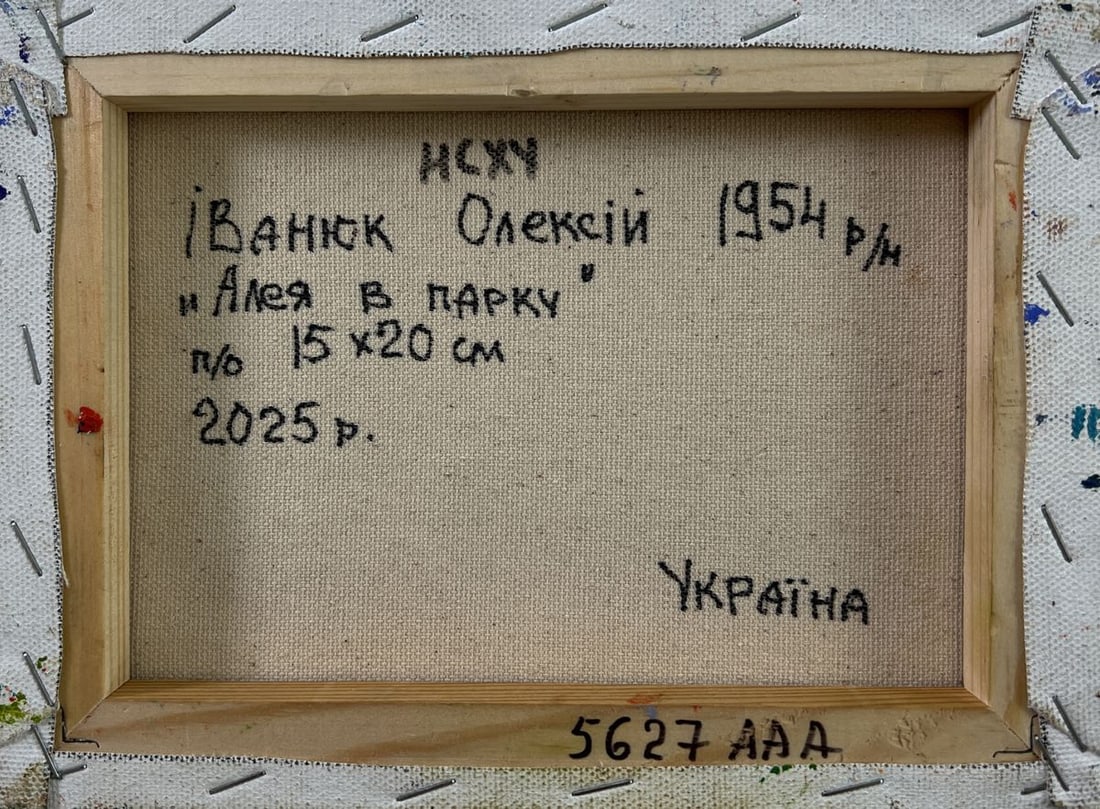 НСХУ
Іванюк Олексій 1954 р/н
„Алея в парку"
п/о 15х20 см
2025 р.
Україна
5627 ААА